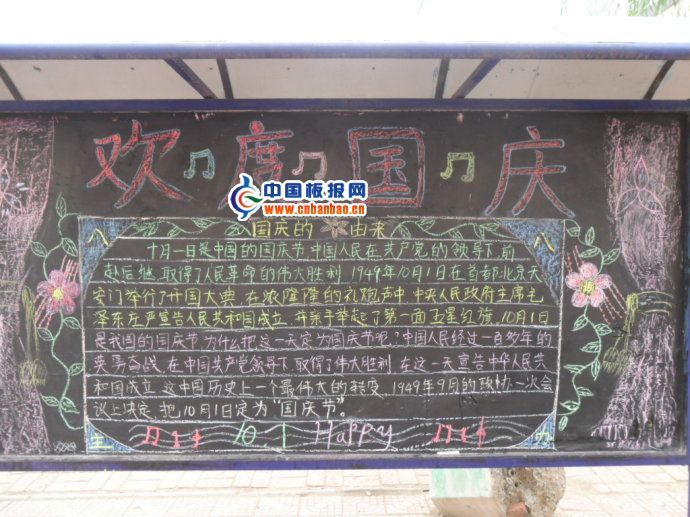 欢度国庆
中国板报网
www.cnbanbao.cn
国庆的由来
八
八
十月一日是中国的国庆节中国人民在共产党的领导下前
赴后继.取得了人民革命的伟大胜利.1949年10月1日在首都北京天
安门举行了开国大典.在浓隆隆的礼炮声中.中央人民政府主席毛
泽东庄严宣告人民共和国成立.并亲手举起了第一面五星红旗.10月1日
是我国的国庆节.为什么把这一天定为国庆节呢？中国人民经过一百多年的
英勇奋战.在中国共产党领导下.取得了伟大胜利.在这一天宣告中华人民共
和国成立.这中国历史上一个最伟大的转变.1949年9月的政协一次会
议上决定.把10月1日定为“国庆节”。
主 10 1 Happy 办